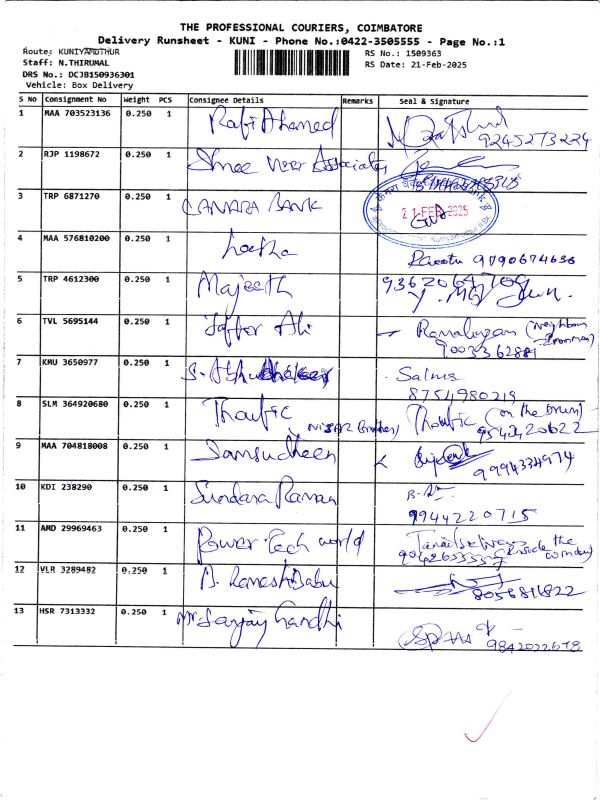 THE PROFESSIONAL COURIERS, COIMBATORE
Delivery Runsheet - KUNI - Phone No.:0422-3505555 - Page No.:1
Route: KUNIYAMUTHUR
RS No.: 1509363
Staff: N.THIRUMAL
RS Date: 21-Feb-2025
DRS No.: DCJB150936301
Vehicle: Box Delivery
S No Consignment No Weight PCS Consignee Details Remarks Seal & Signature
1 MAA 703523136 0.250 1 Rafi Ahamed
9245273224
2 RJP 1198672 0.250 1 Shree Veer Associates
3 TRP 6871270 0.250 1 CANARA BANK
21 FEB 2025
4 MAA 576810200 0.250 1
9790674636
5 TRP 4612300 0.250 1 Majeeth 9362064700
6 TVL 5695144 0.250 1 Jaffer Ali (Neighbour
7 KMU 3650977 0.250 1 Salma
8754980219
8 SLM 364920680 0.250 1 Thoufic (Nisar Brother) Thoufic
9 MAA 704818008 0.250 1 Samsudheen
99994334974
10 KDI 238290 0.250 1 Sundara Raman
9944220715
11 AMD 29969463 0.250 1 Power Tech world (Inside the
12 VLR 3289482 0.250 1 A. Ramesh Babu
8056816822
13 HSR 7313332 0.250 1 Mr Sanjay Gandhi
9842022678